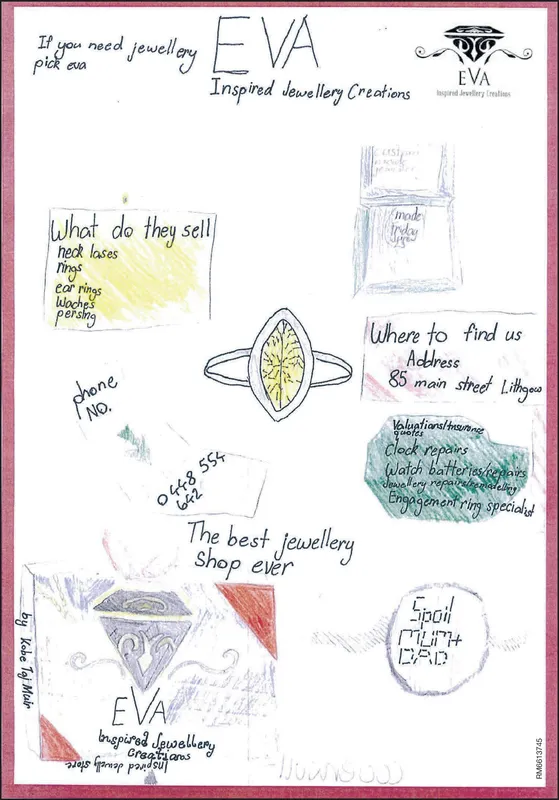 If you need jewellery
pick eva
EVA
Inspired Jewellery Creations
EVA
Inspired Jewellery Creations
made
friday
What do they sell
neck lases
rings
ear rings
waches
persing
Where to find us
Address
85 main street Lithgow
phone
NO.
0448 554
642
Valuations/Insurance
quotes
Clock repairs
Watch batteries/repairs
Jewellery repairs/remodelling
Engagement ring specialist
The best jewellery
Shop ever
by Kobe Taj Muir
EVA
Inspired Jewellery
Creations
Inspired Jewelly store
Spoil
MUM+
DAD
RM6613745